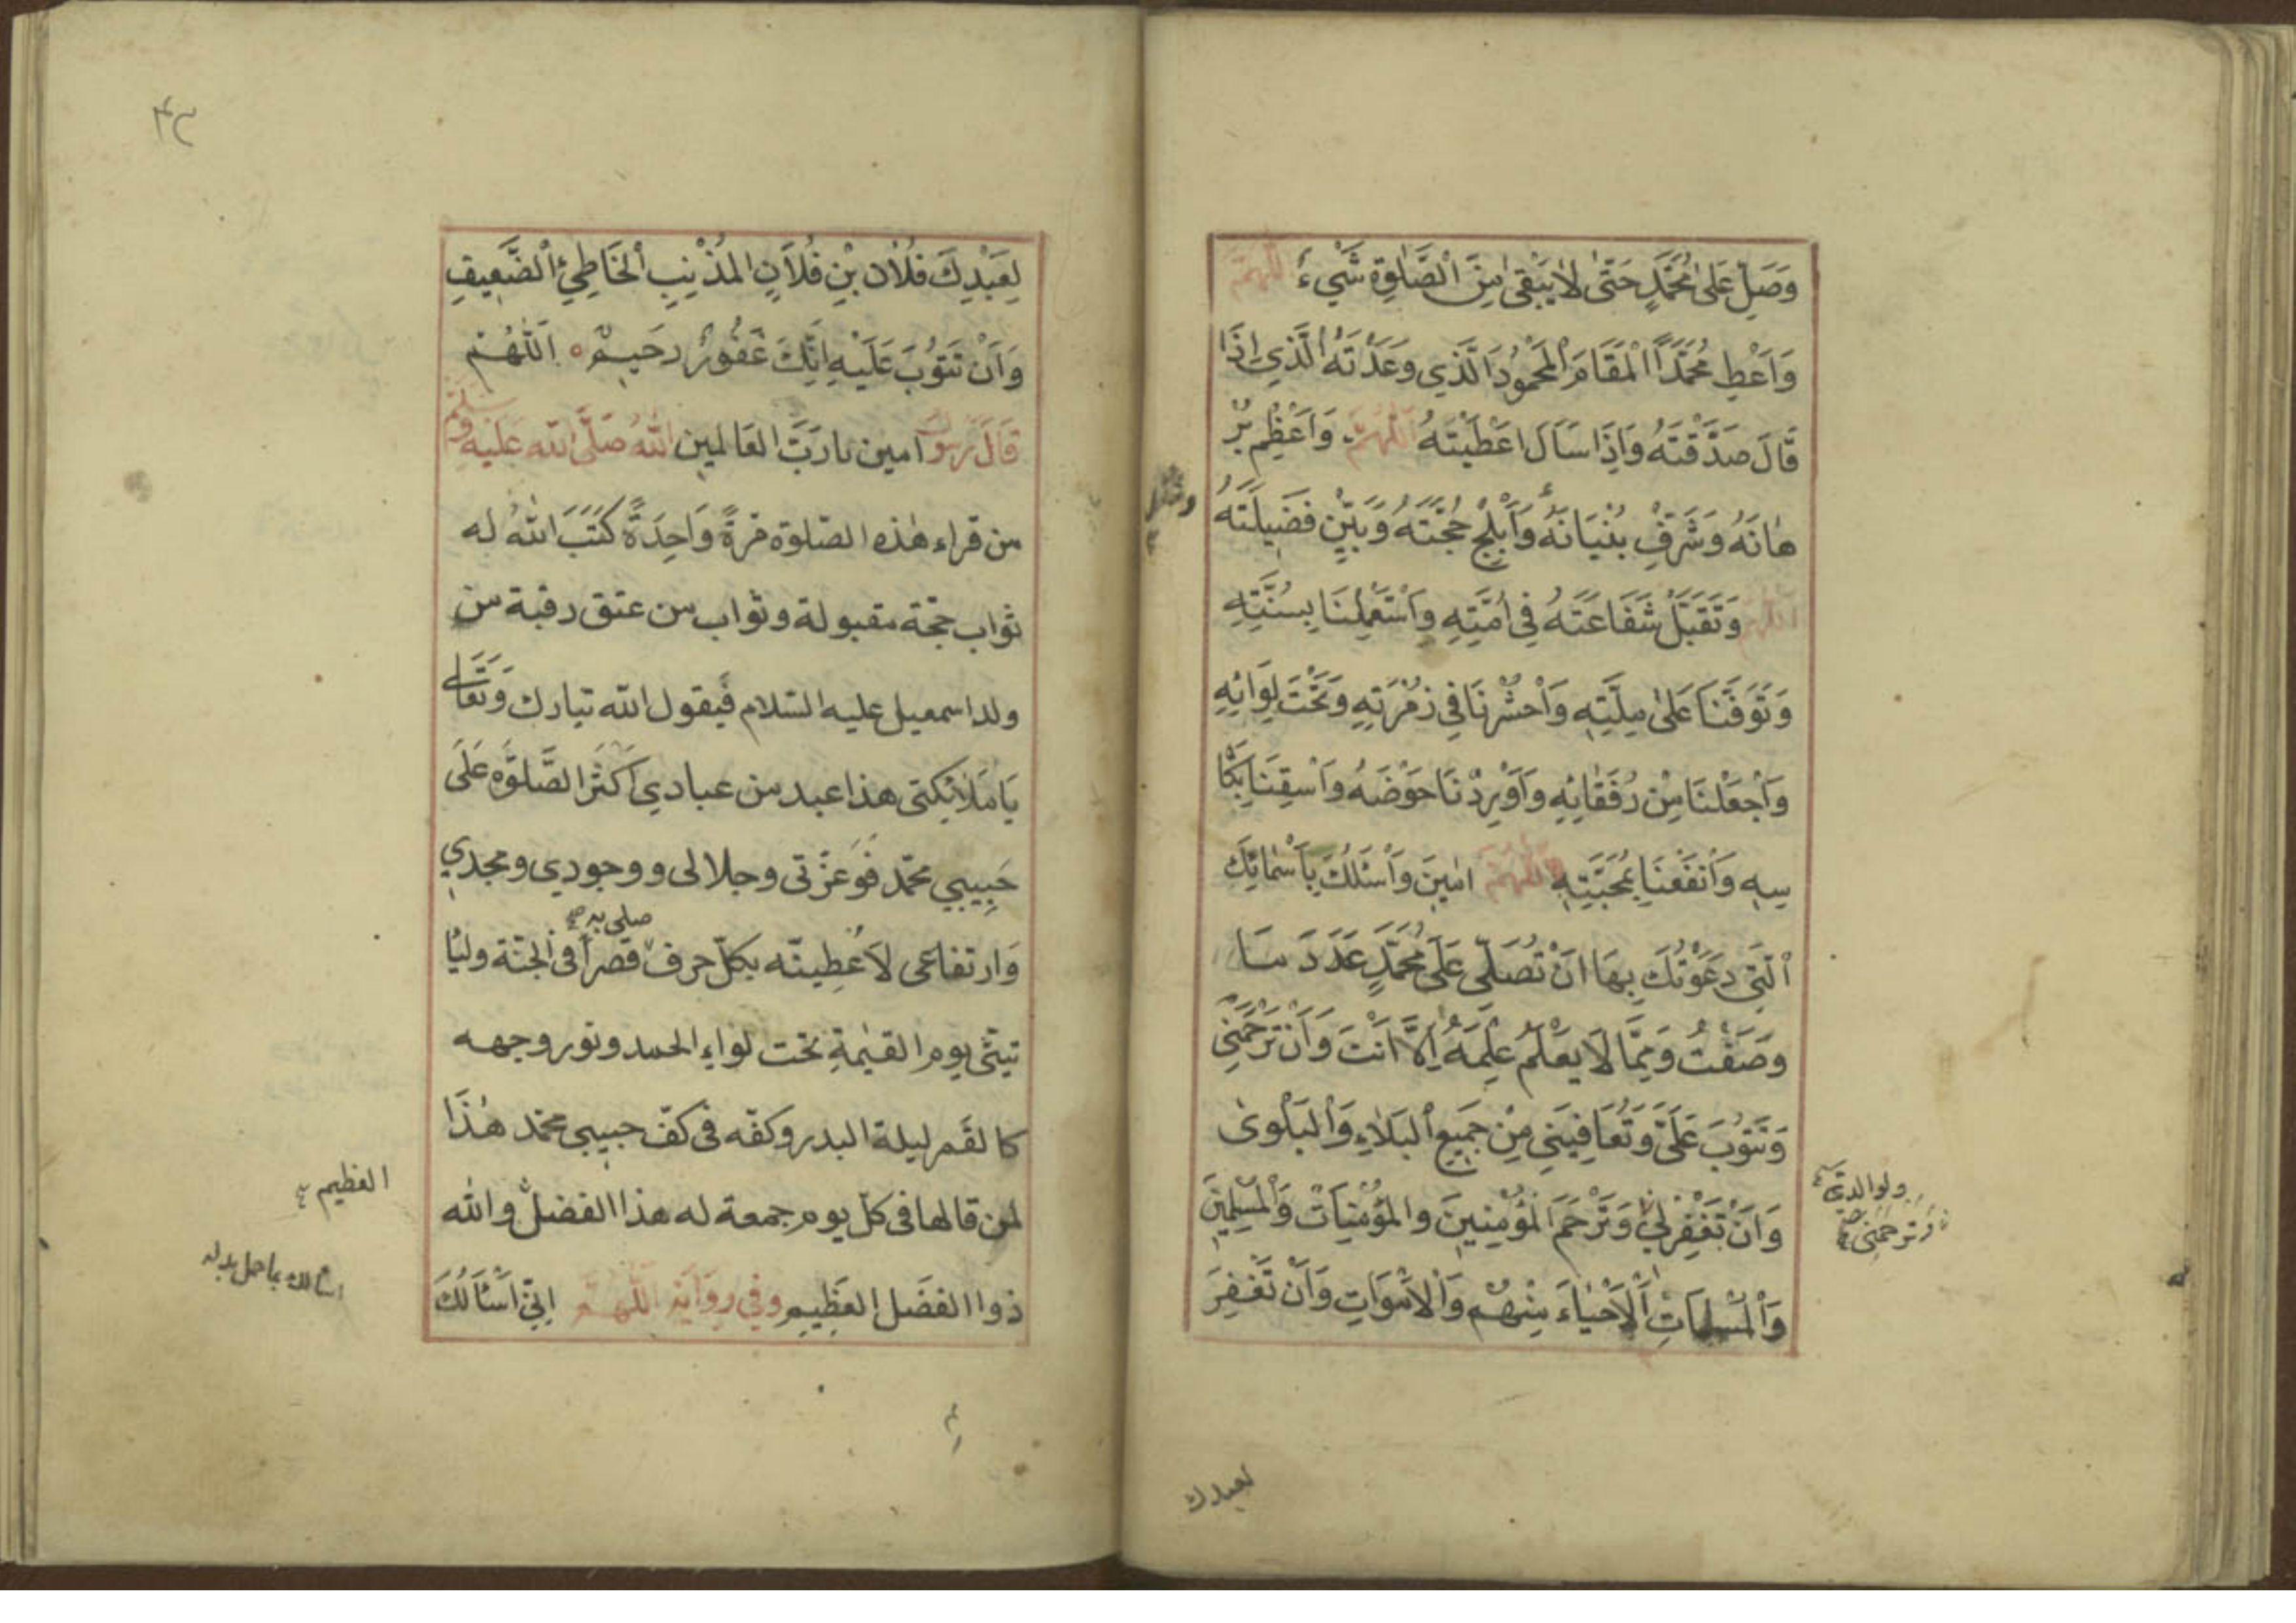 وَصَلِّ عَلىٰ مُحَمَّدٍ حَتّٰى لٰا يَبْقىٰ مِنَ الصَّلٰوةِ شَيْءٌ اللّٰهمّ
وَاَعْطِ مُحَمَّدًا الْمَقَامَ الْمَحْمُودَ الَّذي وَعَدْتَهُ الَّذِي اِذَا
قَالَ صَدَّقْتَهُ وَاِذَا سَاَلَ اعْطَيْتَهُ اللّٰهُمَّ وَاَعْظِم بُرْ
هٰانَهُ وَشَرِّفْ بُنْيَانَهُ وَاَبْلِجْ حُجَّتَهُ وَبَيِّنْ فَضيلَتَهُ
اللّٰهُمَّ وَتَقَبَّلْ شَفَاعَتَهُ فِي اُمَّتِهِ وَاسْتَعْمِلْنَا بِسُنَّتِهِ
وَتَوَفَّنَا عَلىٰ مِلَّتِهِ وَاحْشُرْنَا فِي زُمْرَتِهِ وَتَحْتَ لِوَائِهِ
وَاجْعَلْنَا مِنْ رُفَقَائِهِ وَاَوْرِدْنَا حَوْضَهُ وَاَسْقِنَا بِكَأ
سِهِ وَانْفَعْنَا بِمُحَبَّتِهِ اللّٰهُمَّ اٰمِينَ وَاَسْئَلُكَ بِاَسْمٰائِكَ
الَّتِي دَعَوْتُكَ بِهَا اَنْ تُصَلِّيَ عَلَىٰ مُحَمَّدٍ عَدَدَ مَا
وَصَفْتُ وَمِمَّا لَا يَعْلَمُ عِلْمَهُ اِلَّا اَنْتَ وَاَنْ تَرْحَمَنِي
وَتَتُوبَ عَلَيَّ وَتُعَافِيَنِي مِنْ جَمِيعِ الْبَلَاءِ وَالْبَلْوىٰ
وَاَنْ تَغْفِرَ لِي وَتَرْحَمَ الْمُؤْمِنِينَ وَالْمُؤْمِنَاتِ وَالْمُسْلِمِينَ
وَالْمُسْلِمَاتِ اَلْاَحْيَاءَ مِنْهُمْ وَالْاَمْوَاتِ وَاَنْ تَغْفِرَ
ولوالديّ
وترحمني
لعبدك
٤٢
لِعَبْدِكَ فُلَانِ بْنِ فُلَانٍ المُذْنِبِ الْخَاطِئِ الضَّعِيفِ
وَاَنْ تَتُوبَ عَلَيْهِ اِنَّكَ غَفُورٌ رَحِيمٌ اَللّٰهُمَّ
امين يا رَبَّ العَالمين قَالَ رَسولُ اللهُ صَلَّى الله عَلَيْهِ وَسلم
من قراء هٰذه الصّلوة مَرةً وَاحِدَةً كَتَبَ اللهُ له
ثواب حجّة مقبولة وثواب من عتق رقبة من
ولد اسمعيل عليه السّلام فَيقول الله تبارك وَتَعَالى
يَا مَلَائكتي هذا عبد من عبادي اَكثَرَ الصَّلوٰة عَلَى
حَبِيبِي محمّد فَوَعزّتى وجلالى ووجودي ومجدي
وَارتفاعى لَاُعْطِينّه بكلّ حرف صلى به قصراً فى الجنّة وليأ
تينّى يوم القيٰمةِ تحت لواءِ الحمد ونور وجهه
كالقَمر ليلة البدر وكفّه فى كفّ حبيبي محمّد هٰذَا
لمن قالها فى كلّ يوم جمعة له هذا الفضلُ والله
ذوا الفضل العَظِيمِ وَفي رِوَايَةٍ اَللّٰهُمَّ اِنِّي اَسْئَالُكَ
العظيم